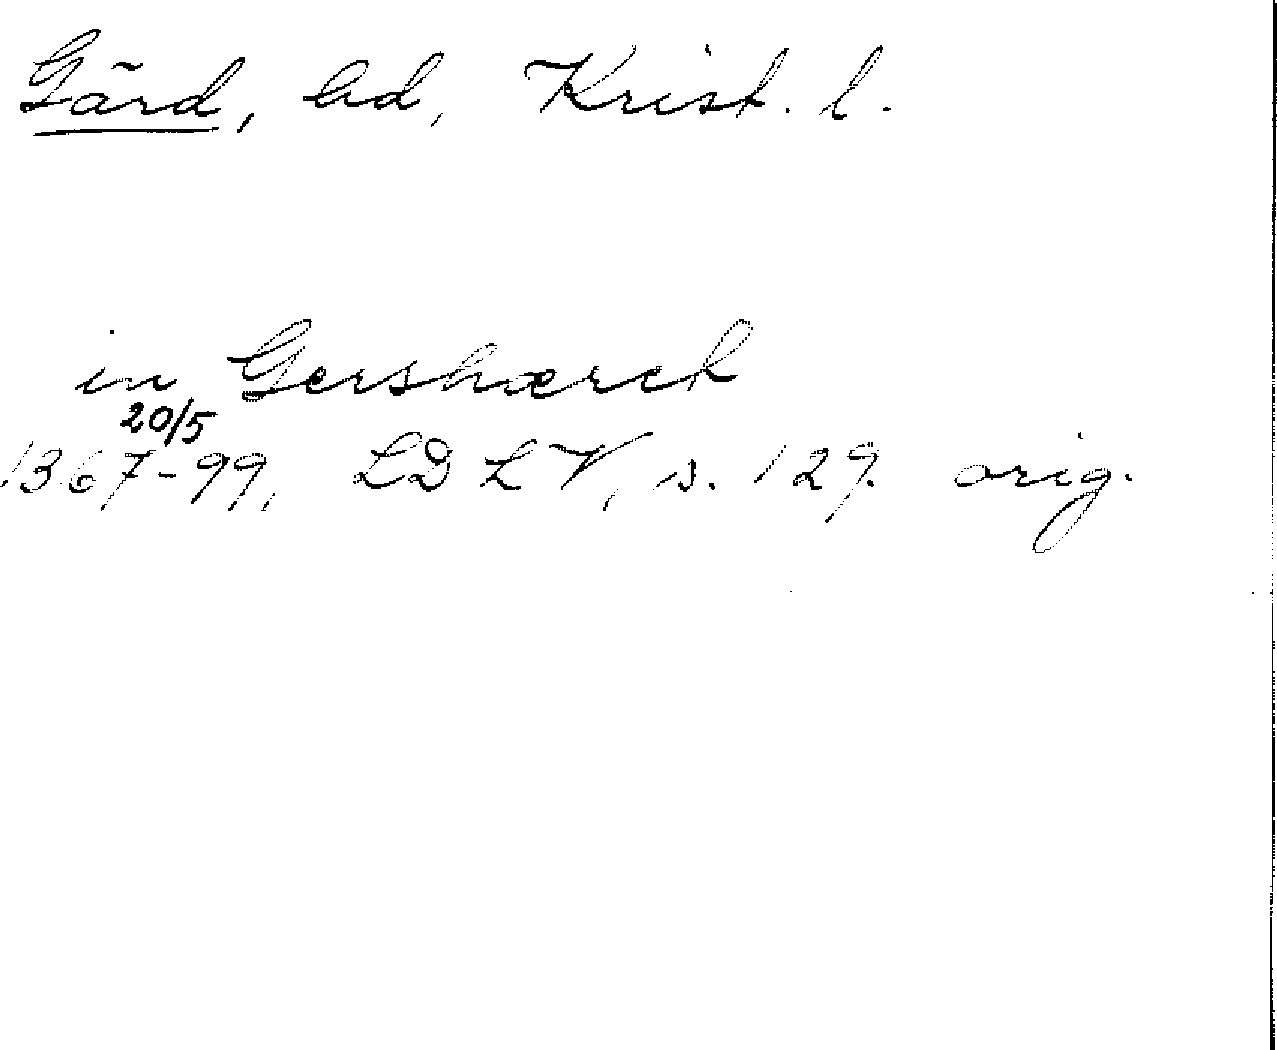 Gärd, hd, Krist. l.
in Gershærek
20/5
1367-99, LDLV, s. 129. orig.